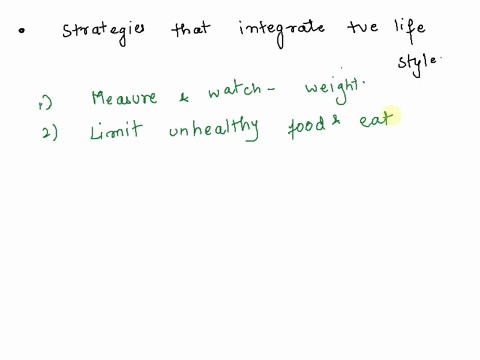 • Strategies that integrate +ve life
style.
1) Measure & watch - weight.
2) Limit unhealthy food & eat